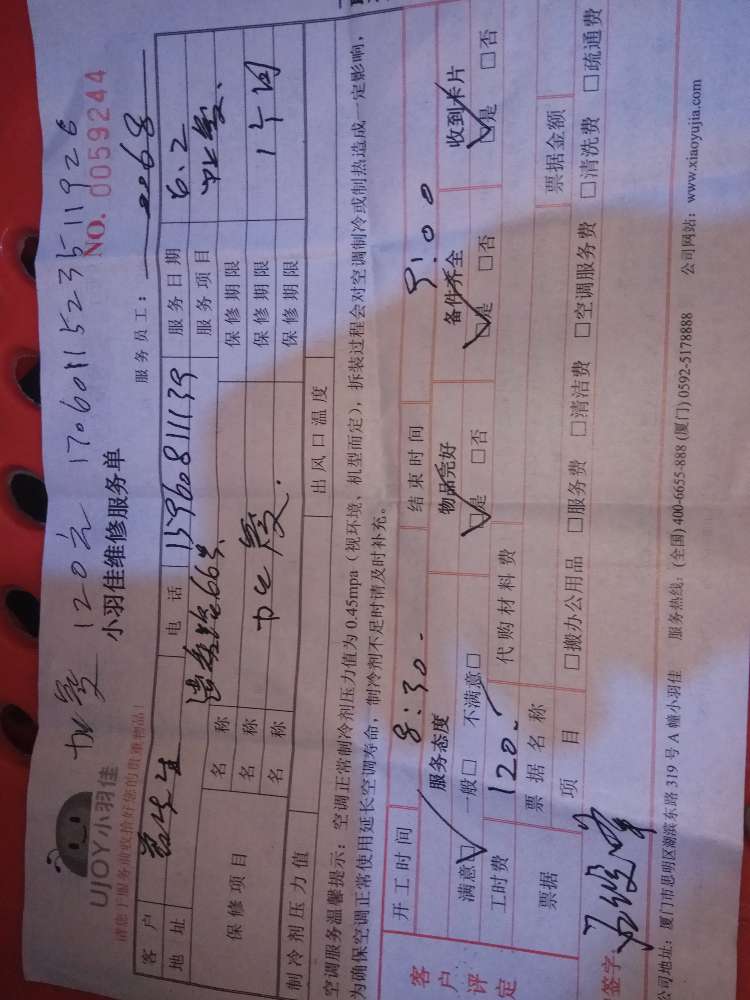 120元 1706011523511926
UJOY小羽佳
小羽佳维修服务单
NO. 0059244
请您于服务前收拾好您的贵重物品!
服务员工: 0068
客户 先生 电话 15960811139 服务日期 6.2
地址 路66号 服务项目
保修项目 名称 保修期限
名称 保修期限 1个月
名称 保修期限
制冷剂压力值 出风口温度
空调服务温馨提示: 空调正常制冷剂压力值为 0.45mpa (视环境、机型而定), 拆装过程会对空调制冷或制热造成一定影响,
为确保空调正常使用延长空调寿命, 制冷剂不足时请及时补充。
开工时间 8:30 结束时间 9:00
客户评定 服务态度 物品完好 备件齐全 收到卡片
满意□ 一般□ 不满意□ □是 □否 □是 □否 □是 □否
工时费 120 代购材料费
票据 票据名称 票据金额
项目 □搬办公用品 □服务费 □清洁费 □空调服务费 □清洗费 □疏通费
签字:
公司地址: 厦门市思明区湖滨东路 319 号 A 幢小羽佳 服务热线: (全国) 400-6655-888 (厦门) 0592-5178888 公司网站: www.xiaoyujia.com